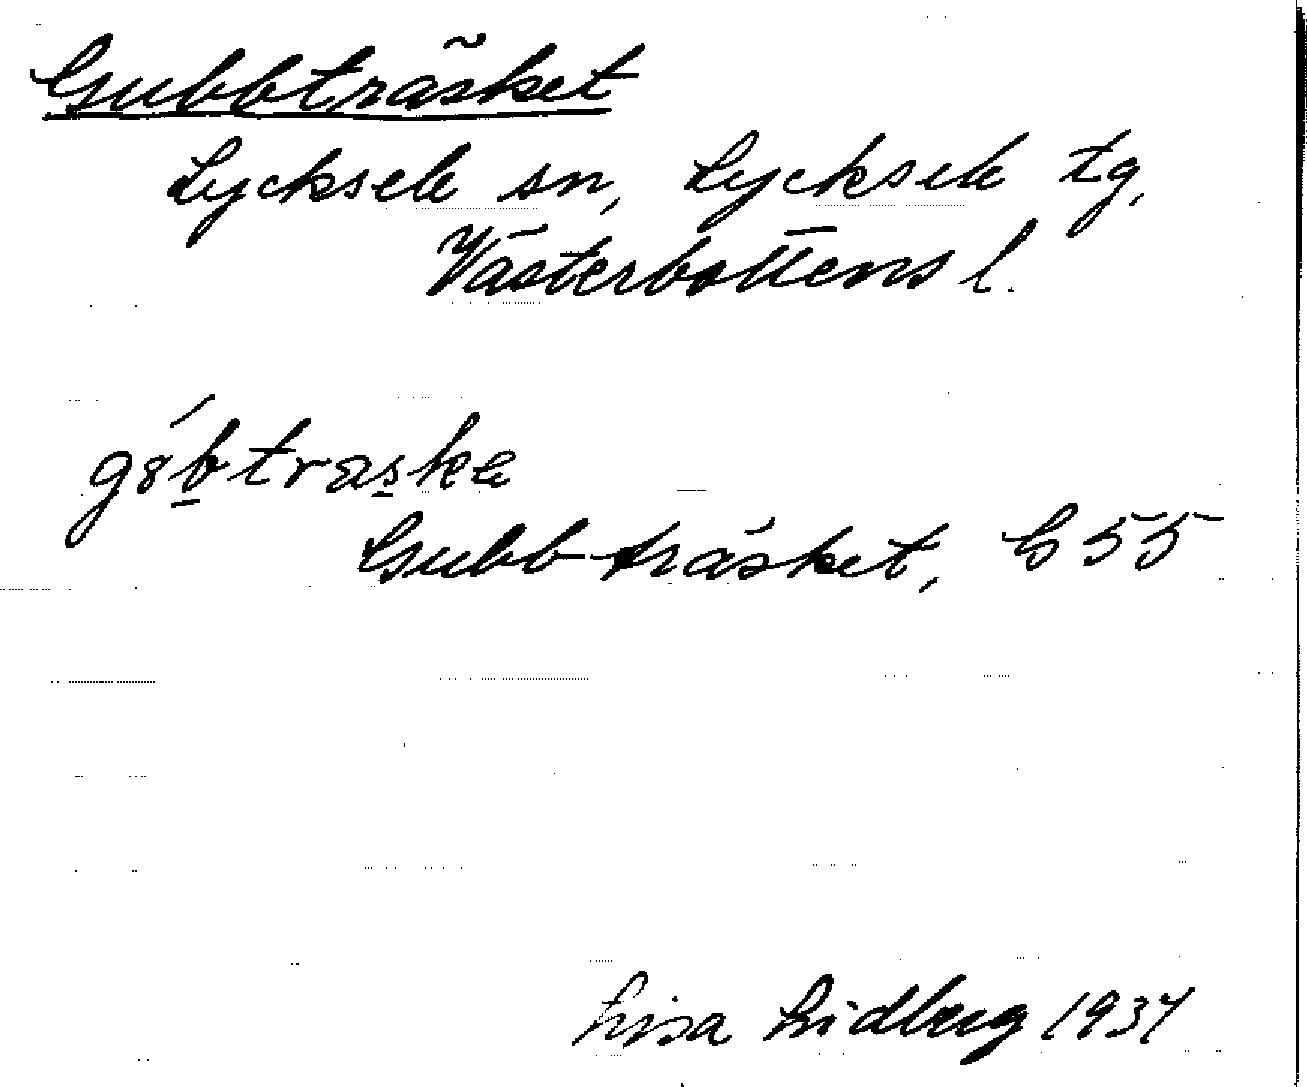 Gubbträsket
Lycksele sn, Lycksele tg,
Västerbottens l.
Gubbträsket, G 55
Lisa Lidberg 1937